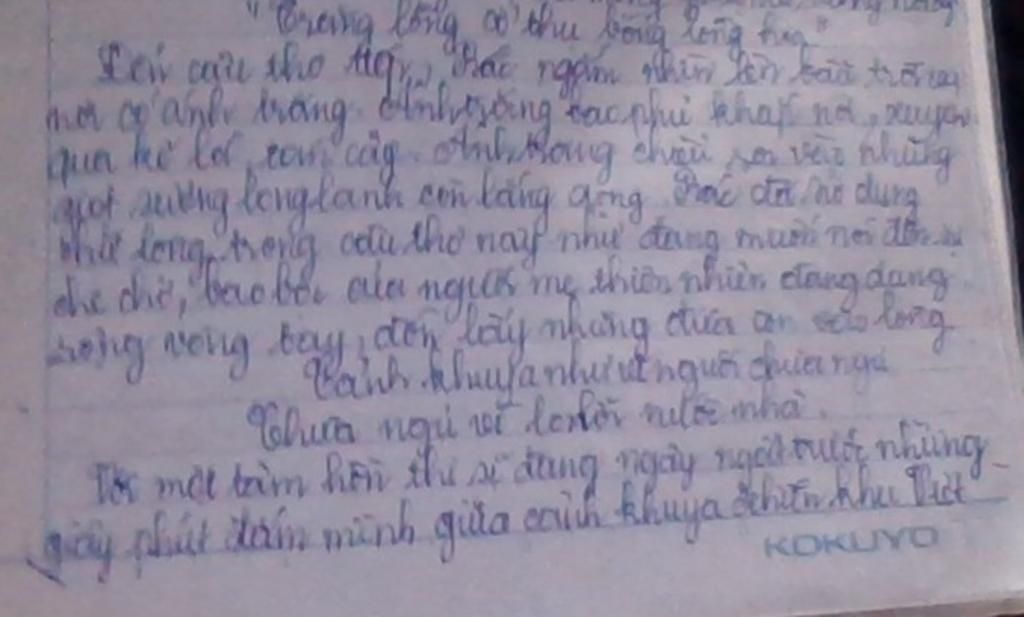 "Trăng lồng cổ thụ bóng lồng hoa"
Đến câu thơ này, Bác ngắm nhìn lên bầu trời
mà có ánh trăng. Ánh trăng bao phủ khắp nơi, xuyên
qua kẽ lá, tán cây. Ánh trăng chiếu rọi vào những
giọt sương long lanh còn lắng đọng. Bác đã sử dụng
như lồng trong câu thơ này như đang muốn nói đến sự
che chở, bao bọc của người mẹ thiên nhiên đang dang
rộng vòng tay, đón lấy những đứa con vào lòng
Cảnh khuya như vẽ người chưa ngủ
Chưa ngủ vì lo nỗi nước nhà.
một tâm hồn thi sĩ đang ngây ngất trước những
giây phút đắm mình giữa cảnh khuya chiến khu Việt
KOKUYO